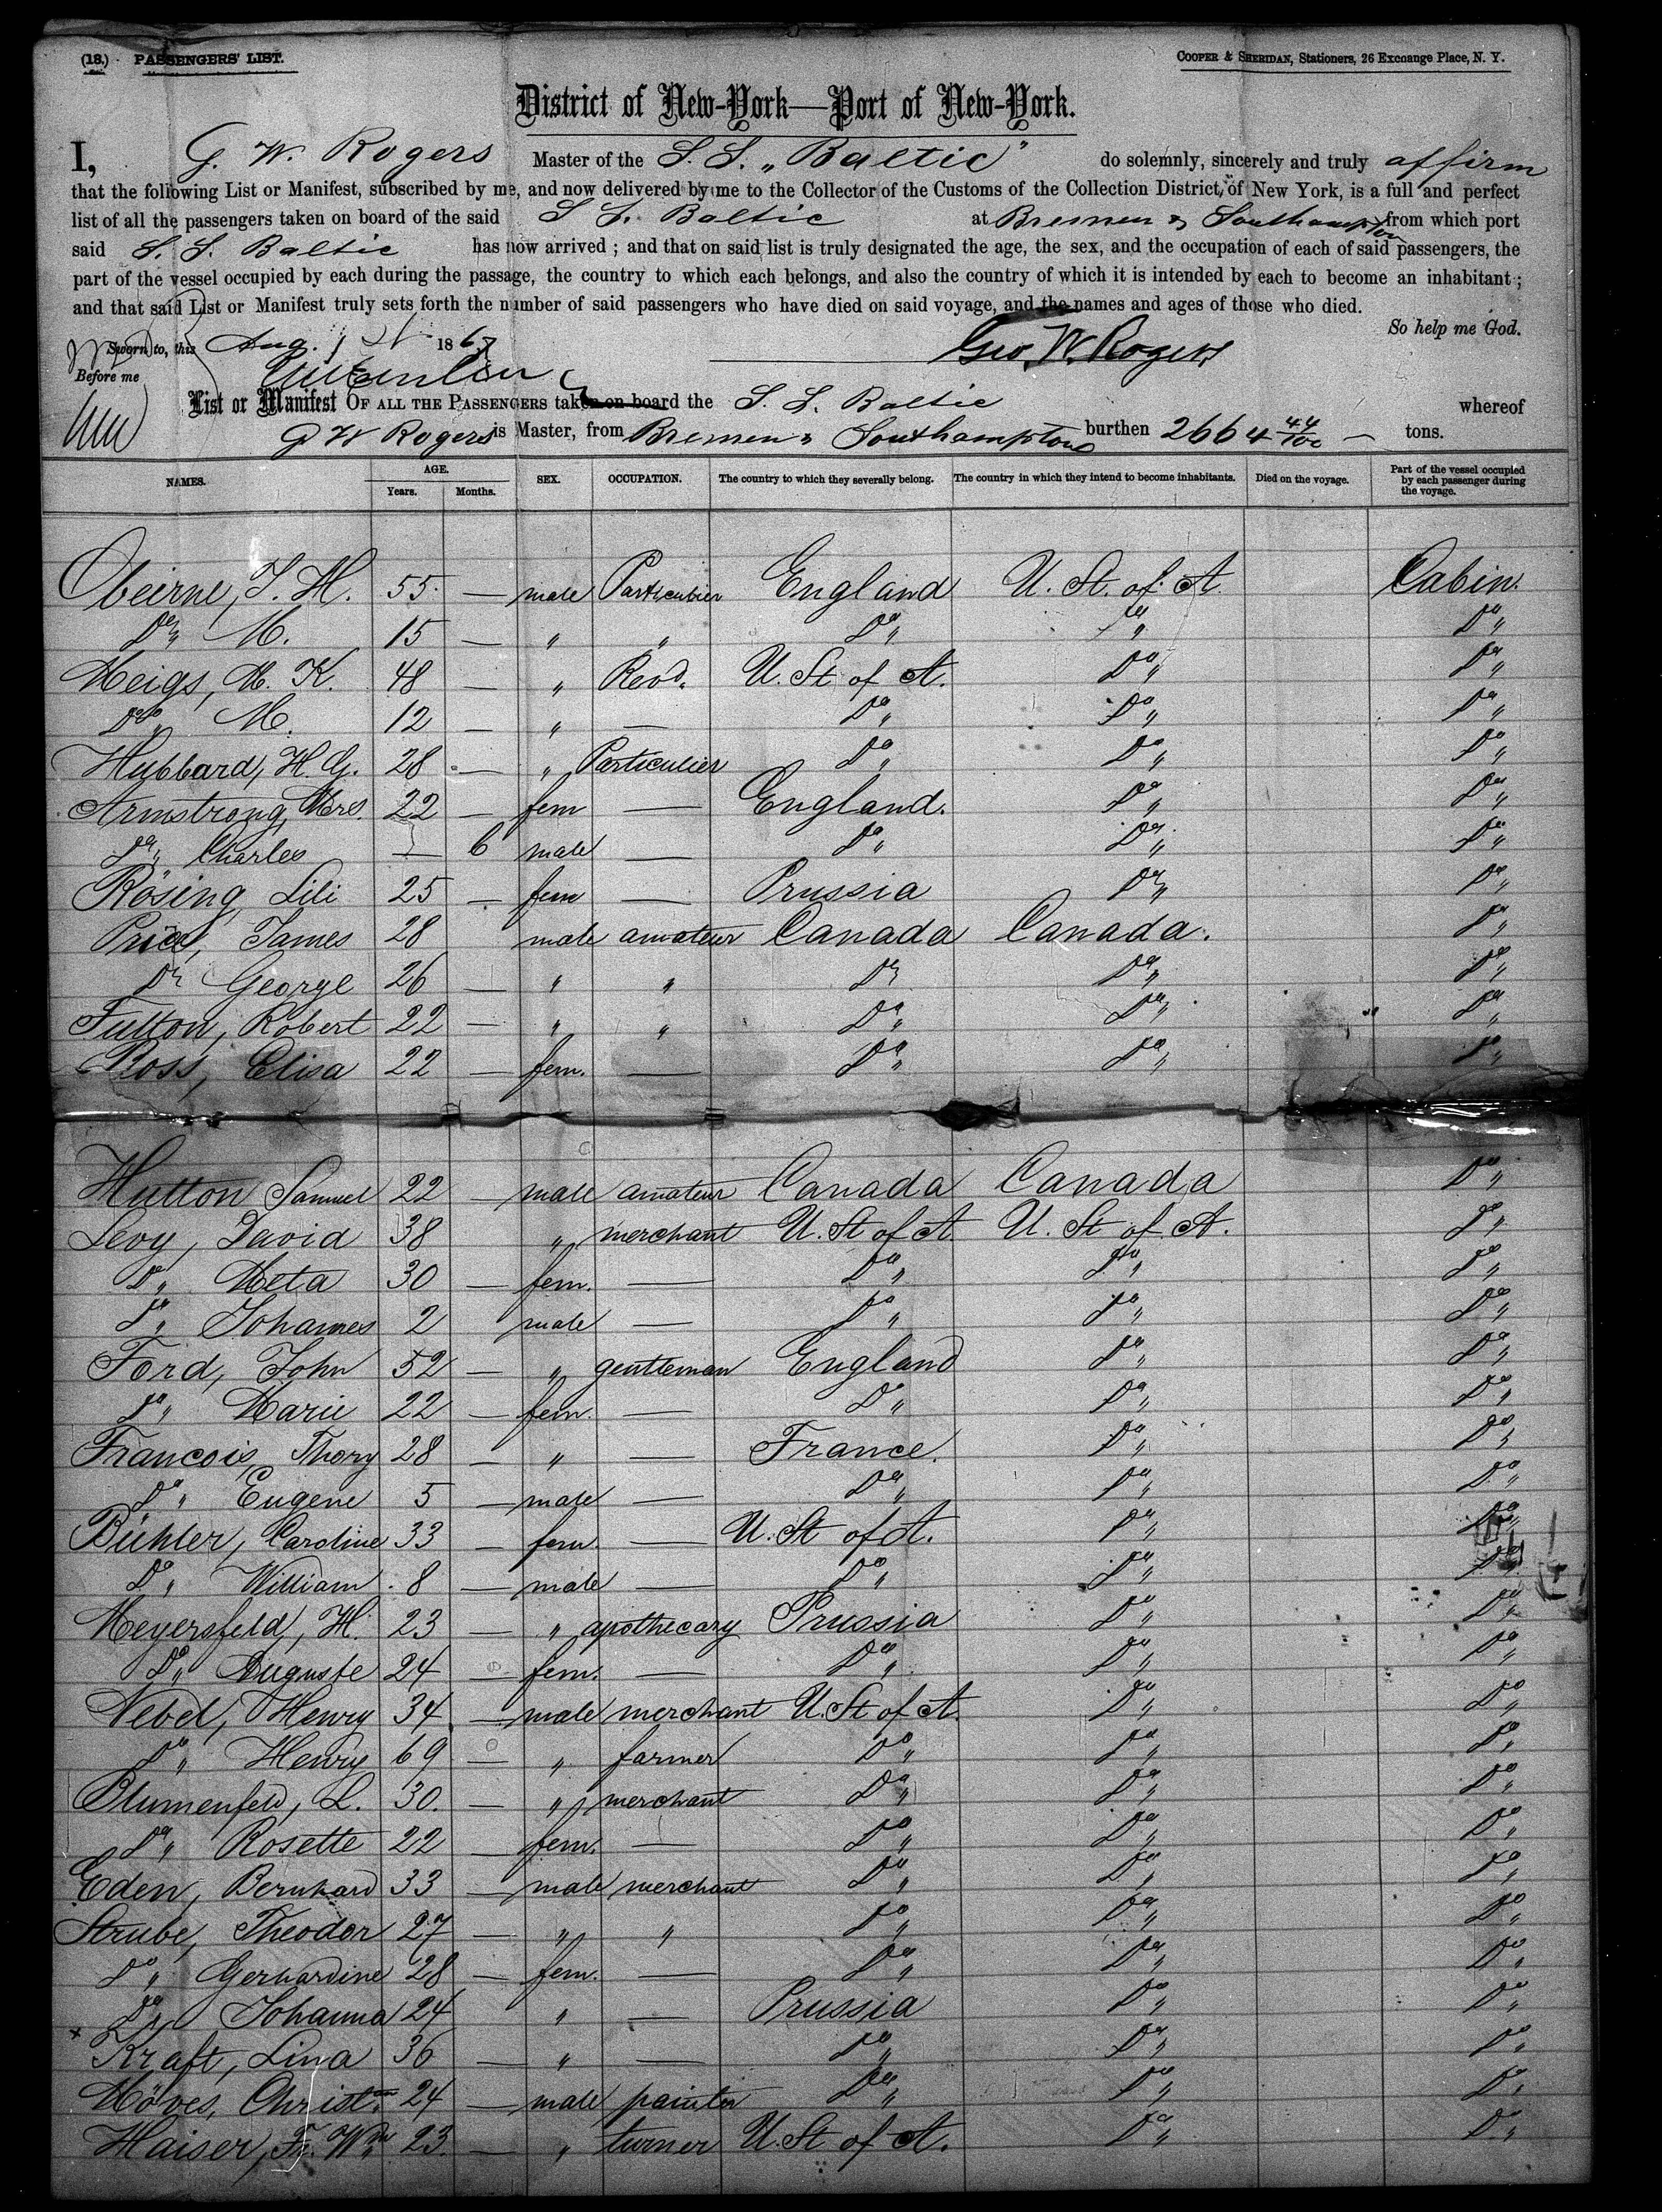 (18.) PASSENGERS' LIST.
COOPER & SHERIDAN, Stationers, 26 Exchange Place, N. Y.
District of New-York—Port of New-York.
I, G. W. Rogers Master of the S. S. „Baltic" do solemnly, sincerely and truly affirm
that the following List or Manifest, subscribed by me, and now delivered by me to the Collector of the Customs of the Collection District of New York, is a full and perfect
list of all the passengers taken on board of the said S S. Baltic at Bremen & Southampton from which port
said S. S. Baltic has now arrived ; and that on said list is truly designated the age, the sex, and the occupation of each of said passengers, the
part of the vessel occupied by each during the passage, the country to which each belongs, and also the country of which it is intended by each to become an inhabitant ;
and that said List or Manifest truly sets forth the number of said passengers who have died on said voyage, and the names and ages of those who died.
So help me God.
Sworn to, this Aug. 186
Geo. W. Rogers
Before me
List or Manifest OF ALL THE PASSENGERS taken on board the S. S. Baltic whereof
G W Rogers is Master, from Bremen & Southampton burthen 2664 44/100 — tons.
NAMES. AGE. Years. Months. SEX. OCCUPATION. The country to which they severally belong. The country in which they intend to become inhabitants. Died on the voyage. Part of the vessel occupied by each passenger during the voyage.
Obeirne, T. H. 55. — male Particulier England U. St. of A. Cabin.
Do„ M. 15 — „ „ Do„ Do„ Do„
Meigs, M. K. 48 — „ Revd. U. St of A. Do„ Do„
Do„ M. 12 — „ — Do„ Do„ Do„
Hubbard, H. G. 28 — „ Particulier Do„ Do„ Do„
Armstrong, Mrs. 22 — fem — England. Do„ Do„
Do„ Charles — 6 male — Do„ Do„ Do„
Rösing, Lili 25 — fem — Prussia Do„ Do„
Price, James 28 male amateur Canada Canada. Do„
Do„ George 26 — „ „ Do„ Do„ Do„
Fulton, Robert 22 — „ „ Do„ Do„ Do„
Ross, Elisa 22 — fem. — Do„ Do„ Do„
Hutton Samuel 22 — male amateur Canada Canada Do„
Levy, David 38 „ merchant U. St of A U. St of A. Do„
Do„ Meta 30 — fem. — Do„ Do„ Do„
Do„ Johannes 2 male — Do„ Do„ Do„
Ford, John 52 — „ gentleman England Do„ Do„
Do„ Marie 22 — fem. — Do„ Do„ Do„
Francois, Thory 28 — „ — France. Do„ Do„
Do„ Eugene 5 — male — Do„ Do„ Do„
Bühler, Caroline 33 — fem — U. St of A. Do„ Do„
Do„ William 8 — male — Do„ Do„ Do„
Meyersfeld, H. 23 — „ apothecary Prussia Do„ Do„
Do„ Auguste 24 — fem. — Do„ Do„ Do„
Nebel, Henry 34 — male merchant U. St of A. Do„ Do„
Do„ Henry 69 — „ farmer Do„ Do„ Do„
Blumenfeld, L. 30. — „ merchant Do„ Do„ Do„
Do„ Rosette 22 — fem. — Do„ Do„ Do„
Eden, Bernhard 33 — male merchant Do„ Do„ Do„
Strube, Theodor 27 — „ „ Do„ Do„ Do„
Do„ Gerhardine 28 — fem. — Do„ Do„ Do„
Do„ Johanna 24 „ — Prussia Do„ Do„
Kraft, Lina 36 — „ — Do„ Do„ Do„
Möves, Christ. 24 — male painter Do„ Do„ Do„
Haiser, Fr. Wm 23 — „ turner U. St of A. Do„ Do„